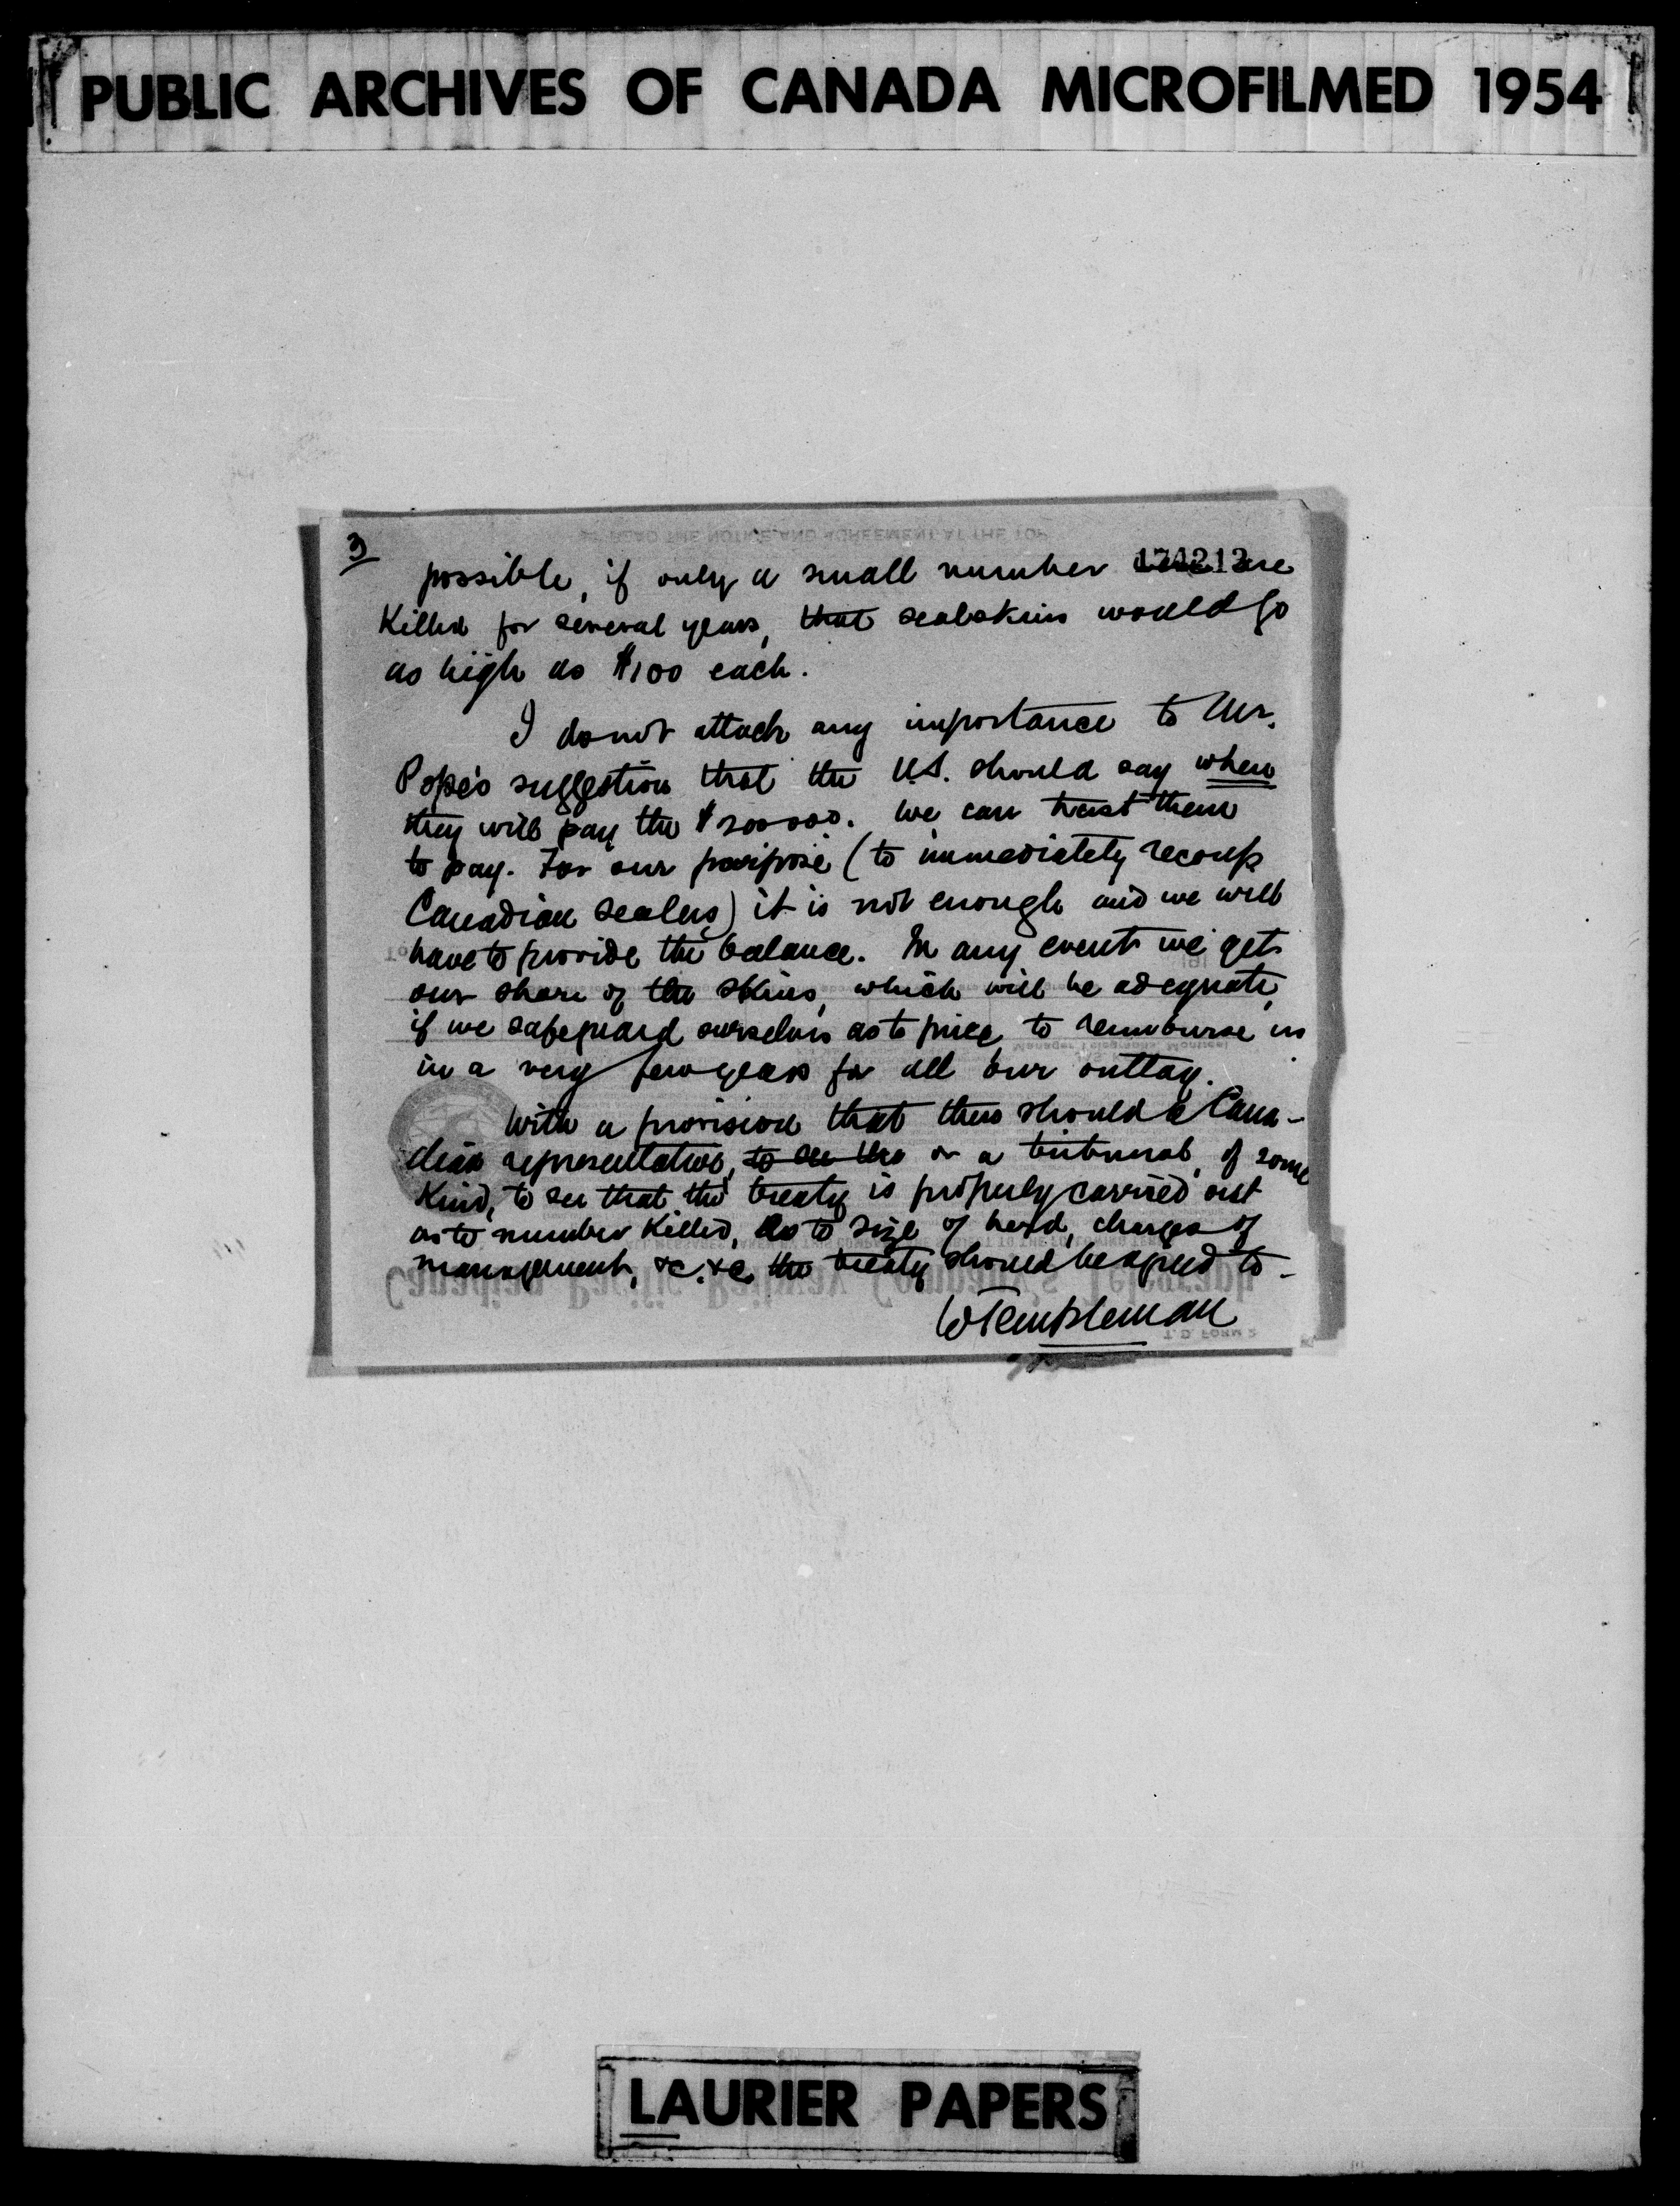 PUBLIC ARCHIVES OF CANADA MICROFILMED 1954
3)
174213
possible, if only a small number are
Killed for several years, that sealskins would go
as high as $100 each.
I do not attach any importance to Mr.
Pope's suggestion that the U.S. should say when
they will pay the $200000. We can trust them
to pay. For our purpose (to immediately recoup
Canadian sealers) it is not enough and we will
have to provide the balance. In any event we get
our share of the skins, which will be adequate,
if we safeguard ourselves as to price, to reimburse us
in a very few years for all our outlay.
With a provision that there should be Cana-
dian representative, to see the or a tribunal, of some
Kind, to see that the treaty is properly carried out
as to number Killed, as to size of herd, charges of
management, &c. &c. the treaty should be agreed to -
WTempleman
LAURIER PAPERS